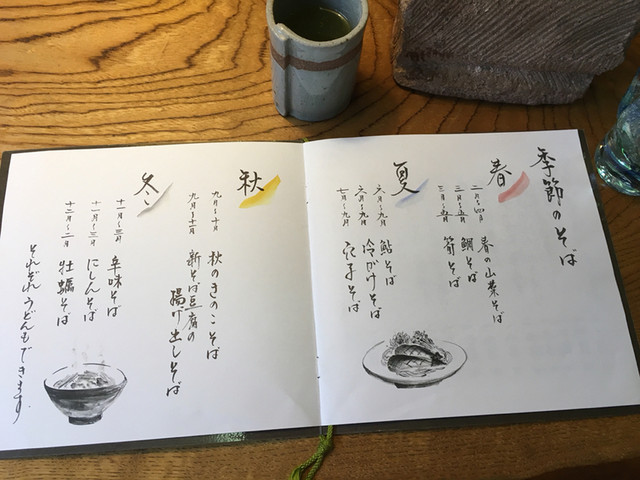 季節のそば
春
二月〜四月 春の山菜そば
三月〜五月 鯛そば
三月〜五月 筍そば
夏
六月〜九月 鮎そば
六月〜九月 冷がけそば
七月〜九月 茄子そば
秋
九月〜十月 秋のきのこそば
九月〜十一月 新そば豆腐の
揚げ出しそば
冬
十一月〜三月 辛味そば
十一月〜三月 にしんそば
十二月〜二月 牡蠣そば
それぞれうどんもできます。